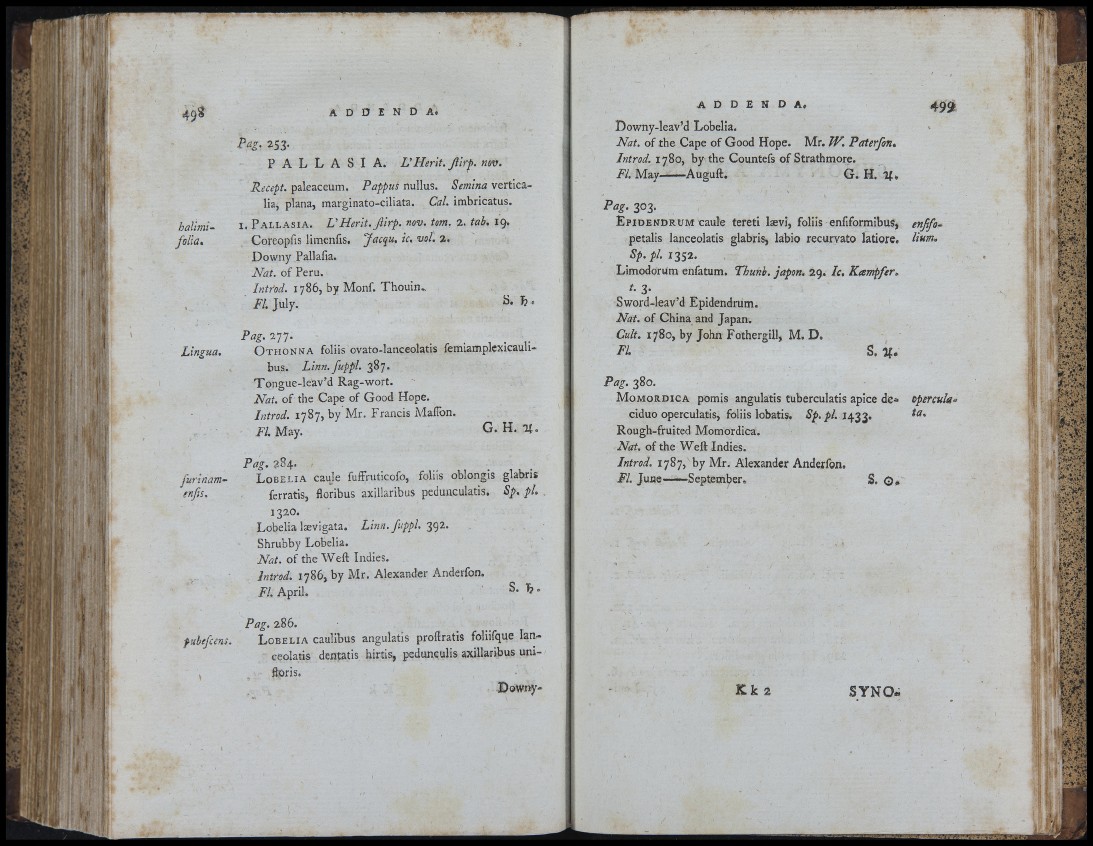 498
ADDENDA.
Pag. 253.
PALLASIA. L'Herit. ſtirp. nov.
Recept. paleaceum. Pappus nullus. Semina vertica-
lia, plana, marginato-ciliata. Cal. imbricatus.
halimi- 1. PALLASIA. L'Herit. ſtirp. nov. tom. 2. tab. 19.
folia. Coreopſis limenſis. Jacqu. ic. vol. 2.
Downy Pallaſia.
Nat. of Peru.
Introd. 1786, by Monſ. Thouin.
Fl. July. S. ♄.
Pag. 277.
Lingua. OTHONNA foliis ovato-lanceolatis ſemiamplexicauli-
bus. Linn. ſuppl. 387.
Tongue-leav'd Rag-wort.
Nat. of the Cape of Good Hope.
Introd. 1787, by Mr. Francis Maſſon.
Fl. May. G. H. ♃.
Pag. 284.
ſurinam- LOBELIA caule ſuffruticoſo, foliis oblongis glabris
enſis. ſerratis, floribus axillaribus pedunculatis. Sp. pl.
1320.
Lobelia lævigata. Linn. ſuppl. 392.
Shrubby Lobelia.
Nat. of the Weſt Indies.
Introd. 1786, by Mr. Alexander Anderſon.
Fl. April. S. ♄.
Pag. 286.
pubeſcens. LOBELIA caulibus angulatis proſtratis foliiſque lan-
ceolatis dentatis hirtis, pedunculis axillaribus uni-
floris.
Downy-
ADDENDA. 499
Downy-leav'd Lobelia.
Nat. of the Cape of Good Hope. Mr. W. Paterſon.
Introd. 1780, by the Counteſs of Strathmore.
Fl. May——Auguſt. G. H. ♃.
Pag. 303.
EPIDENDRUM caule tereti lævi, foliis enſiformibus, enſifo-
petalis lanceolatis glabris, labio recurvato latiore. lium.
Sp. pl. 1352.
Limodorum enſatum. Thunb. japon. 29. Ic. Kæmpfer.
t. 3.
Sword-leav'd Epidendrum.
Nat. of China and Japan.
Cult. 1780, by John Fothergill, M. D.
Fl. S. ♃.
Pag. 380.
MOMORDICA pomis angulatis tuberculatis apice de- opercula-
ciduo operculatis, foliis lobatis. Sp. pl. 1433. ta.
Rough-fruited Momordica.
Nat. of the Weſt Indies.
Introd. 1787, by Mr. Alexander Anderſon.
Fl. June——September. S. ☉.
Kk 2 SYNO-